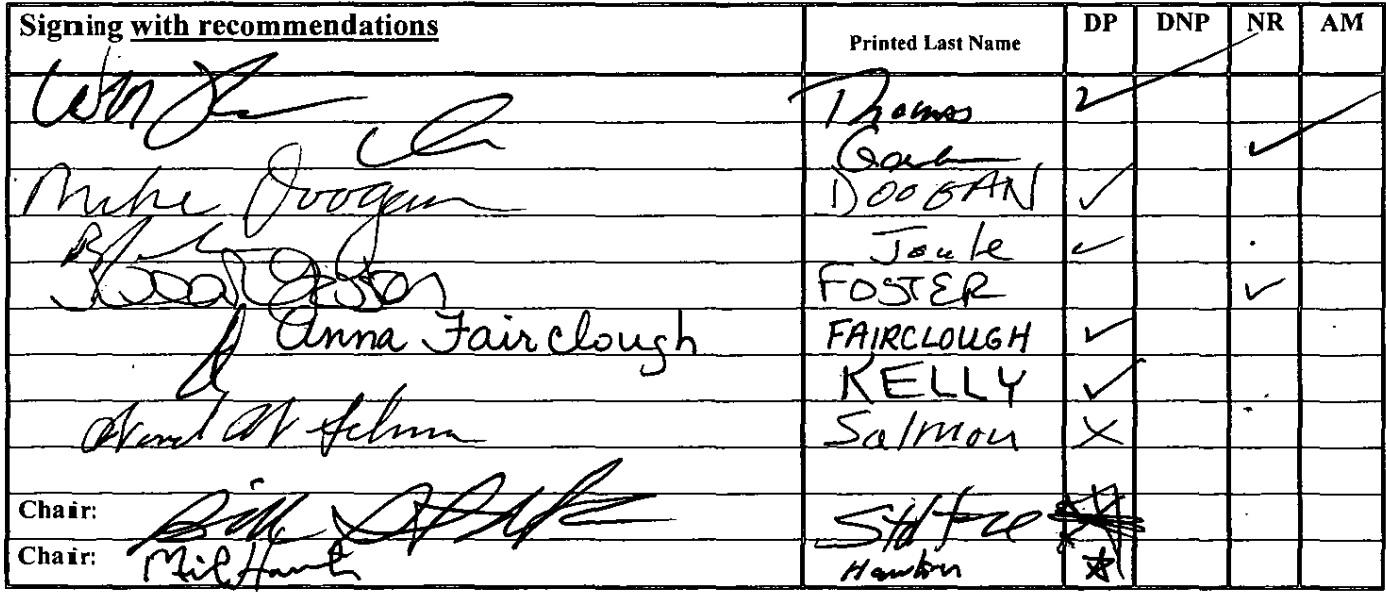 Signing with recommendations Printed Last Name DP DNP NR AM
Thomas ✓
✓
Mike Doogan DOOGAN ✓
Joule ✓
FOSTER ✓
Anna Fairclough FAIRCLOUGH ✓
KELLY ✓
Salmon X
Chair: Bill Stoltze Stoltze
Chair: Mike Hawker Hawker